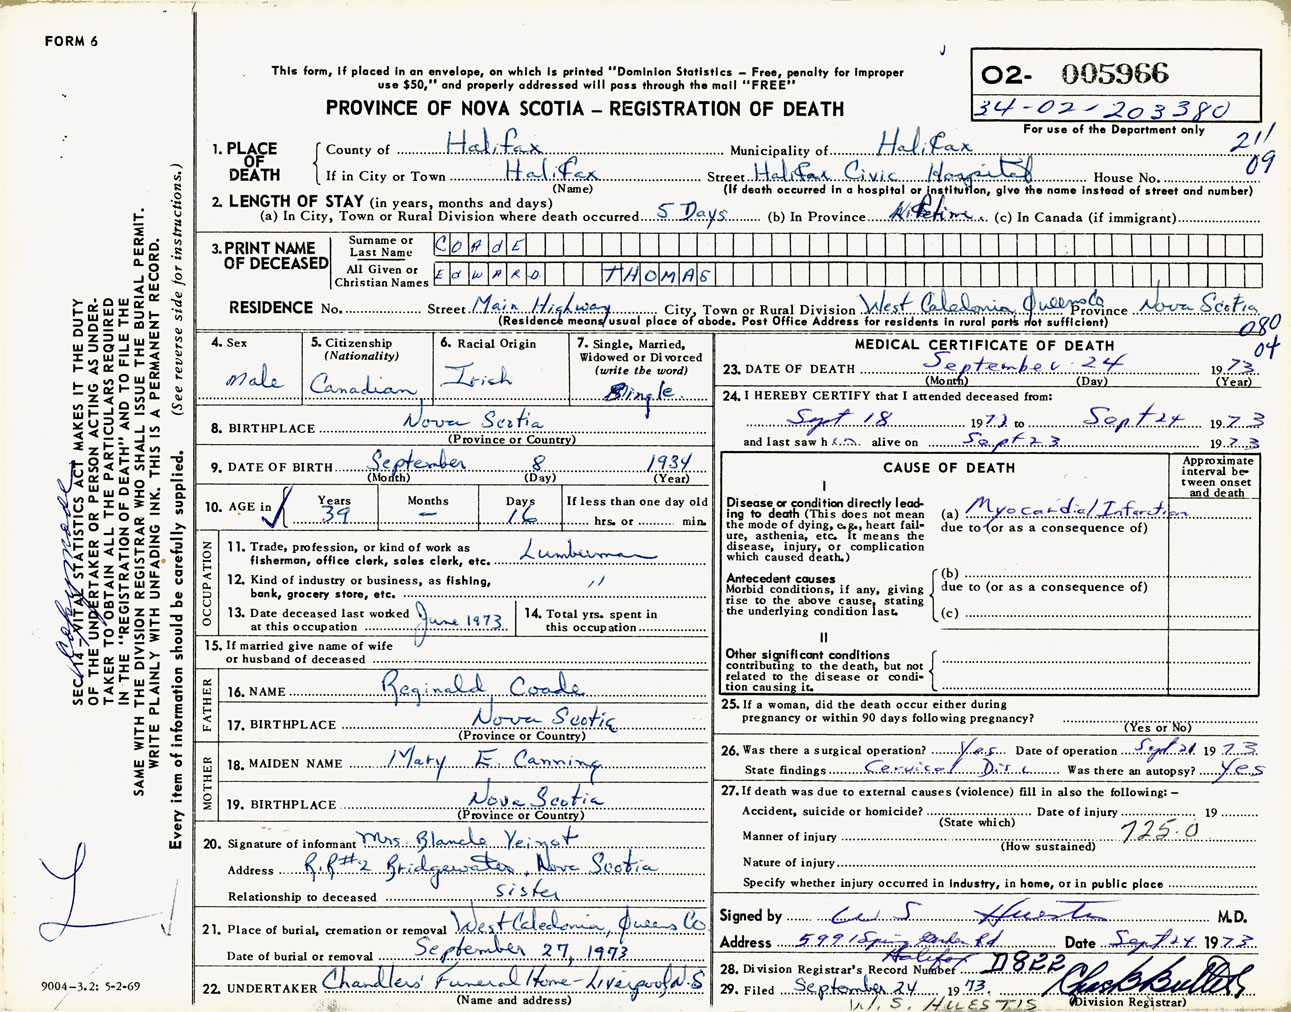 FORM 6
This form, if placed in an envelope, on which is printed "Dominion Statistics – Free, penalty for improper
use $50," and properly addressed will pass through the mail "FREE"
PROVINCE OF NOVA SCOTIA – REGISTRATION OF DEATH
O2- 005966
34-02-203380
For use of the Department only
21/
09
1. PLACE OF DEATH
County of Halifax Municipality of Halifax
If in City or Town Halifax Street Halifax Civic Hospital House No.
(Name) (If death occurred in a hospital or institution, give the name instead of street and number)
2. LENGTH OF STAY (in years, months and days)
(a) In City, Town or Rural Division where death occurred 5 Days (b) In Province Lifetime (c) In Canada (if immigrant)
3. PRINT NAME OF DECEASED
Surname or Last Name COAdE
All Given or Christian Names EdWARD THOMAS
RESIDENCE No. Street Main Highway City, Town or Rural Division West Caledonia, Queens Co Province Nova Scotia
(Residence means usual place of abode. Post Office Address for residents in rural parts not sufficient)
080
04
4. Sex
Male
5. Citizenship
(Nationality)
Canadian
6. Racial Origin
Irish
7. Single, Married,
Widowed or Divorced
(write the word)
Single
8. BIRTHPLACE Nova Scotia
(Province or Country)
9. DATE OF BIRTH September 8 1934
(Month) (Day) (Year)
10. AGE in
Years 39
Months –
Days 16
If less than one day old
hrs. or min.
OCCUPATION
11. Trade, profession, or kind of work as
fisherman, office clerk, sales clerk, etc. Lumberman
12. Kind of industry or business, as fishing,
bank, grocery store, etc. "
13. Date deceased last worked
at this occupation June 1973
14. Total yrs. spent in
this occupation
15. If married give name of wife
or husband of deceased
FATHER
16. NAME Reginald Coade
17. BIRTHPLACE Nova Scotia
(Province or Country)
MOTHER
18. MAIDEN NAME Mary E. Canning
19. BIRTHPLACE Nova Scotia
(Province or Country)
20. Signature of informant Mrs. Blanche Veinot
Address R.R#2 Bridgewater, Nova Scotia
Relationship to deceased sister
21. Place of burial, cremation or removal West Caledonia, Queens Co
Date of burial or removal September 27, 1973
22. UNDERTAKER Chandlers' Funeral Home-Liverpool N.S
(Name and address)
MEDICAL CERTIFICATE OF DEATH
23. DATE OF DEATH September 24 1973
(Month) (Day) (Year)
24. I HEREBY CERTIFY that I attended deceased from:
Sept 18 1973 to Sept 24 1973
and last saw him alive on Sept 23 1973
CAUSE OF DEATH
Approximate
interval be-
tween onset
and death
I
Disease or condition directly lead-
ing to death (This does not mean
the mode of dying, e.g., heart fail-
ure, asthenia, etc. It means the
disease, injury, or complication
which caused death.)
(a) Myocardial Infarction
due to (or as a consequence of)
Antecedent causes
Morbid conditions, if any, giving
rise to the above cause, stating
the underlying condition last.
(b)
due to (or as a consequence of)
(c)
II
Other significant conditions
contributing to the death, but not
related to the disease or condi-
tion causing it.
25. If a woman, did the death occur either during
pregnancy or within 90 days following pregnancy?
(Yes or No)
26. Was there a surgical operation? Yes Date of operation Sept 21 1973
State findings Cervical Disc Was there an autopsy? Yes
27. If death was due to external causes (violence) fill in also the following: –
Accident, suicide or homicide? Date of injury 19
(State which)
Manner of injury 725.0
(How sustained)
Nature of injury
Specify whether injury occurred in industry, in home, or in public place
Signed by W S Huestis M.D.
Address 5991 Spring Garden Rd Date Sept 24 1973
Halifax
28. Division Registrar's Record Number D822
29. Filed September 24 1973.
(Division Registrar)
W.S. HUESTIS
SEC. 14 – VITAL STATISTICS ACT MAKES IT THE DUTY
OF THE UNDERTAKER OR PERSON ACTING AS UNDER-
TAKER TO OBTAIN ALL THE PARTICULARS REQUIRED
IN THE "REGISTRATION OF DEATH" AND TO FILE THE
SAME WITH THE DIVISION REGISTRAR WHO SHALL ISSUE THE BURIAL PERMIT.
WRITE PLAINLY WITH UNFADING INK. THIS IS A PERMANENT RECORD.
Every item of information should be carefully supplied. (See reverse side for instructions.)
9004-3.2: 5-2-69